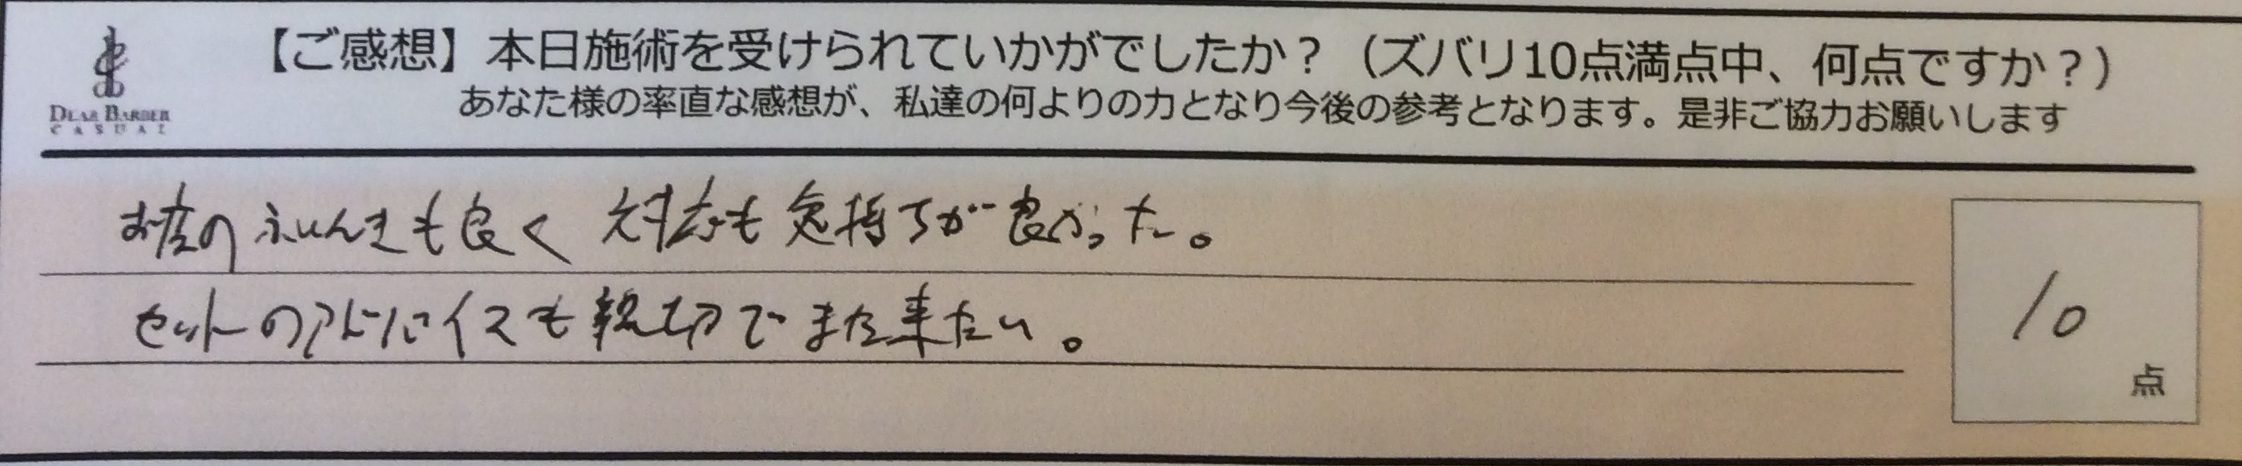 【ご感想】本日施術を受けられていかがでしたか？（ズバリ10点満点中、何点ですか？）
あなた様の率直な感想が、私達の何よりの力となり今後の参考となります。是非ご協力お願いします
DEAR BARBER
CASUAL
お店のふいんきも良く 対応も気持ちが良かった。
セットのアドバイスも親切でまた来たい。
10
点